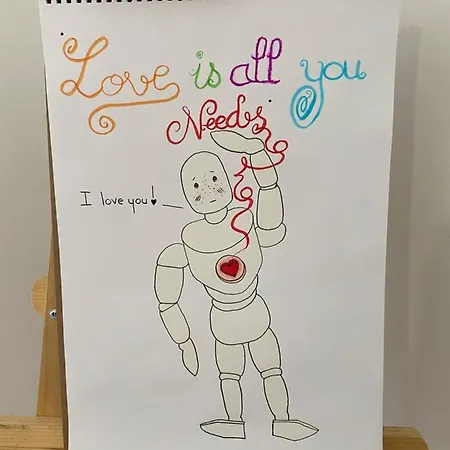 Love is all you
Needs
I love you!